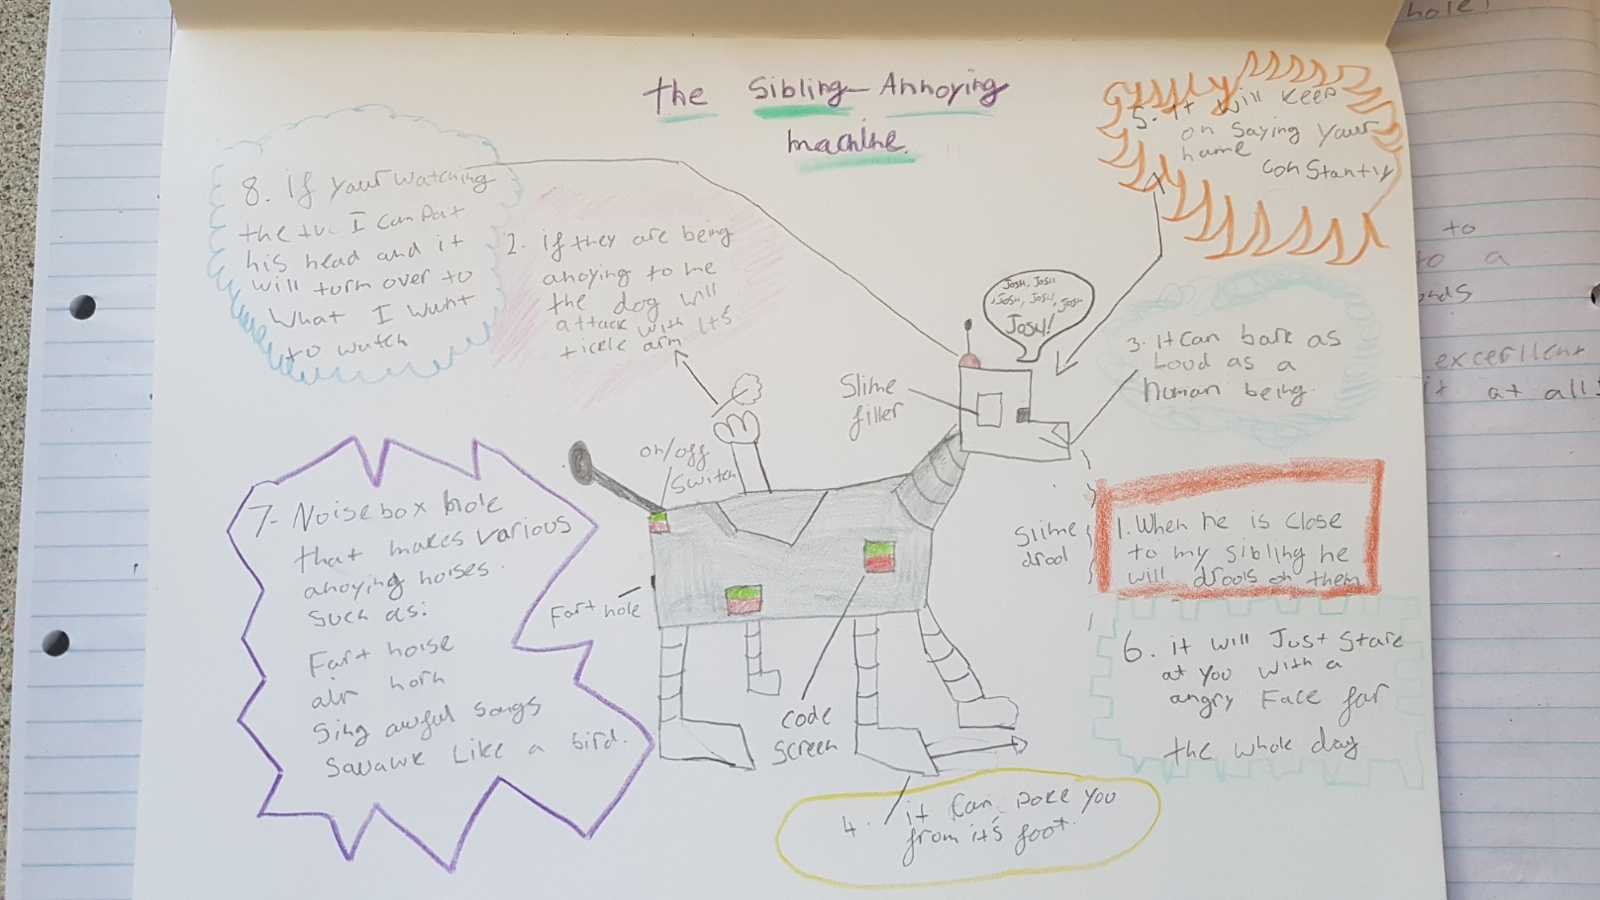 the Sibling-Annoying
machine.
8. if your watching
the tv I can Pat
his head and it
will turn over to
what I want
to watch
2. if they are being
anoying to me
the dog will
attack with its
tickle arm
5. It will keep
on saying your
name
constantly
Josh, Josh
,Josh, Josh, Josh
Josh!
3. it can bark as
Loud as a
human being.
Slime
filler
on/off
switch
7- Noise box hole
that makes various
anoying noises.
Such as:
Fart noise
air horn
Sing awful songs
Sawawk Like a bird.
Fart hole
Slime
drool
1. When he is close
to my sibling he
will drools on them
6. it will Just stare
at you with a
angry Face for
the whole day
code
screen
4. it can poke you
from it's foot.
hole!
to
to a
excerllent
it at all!